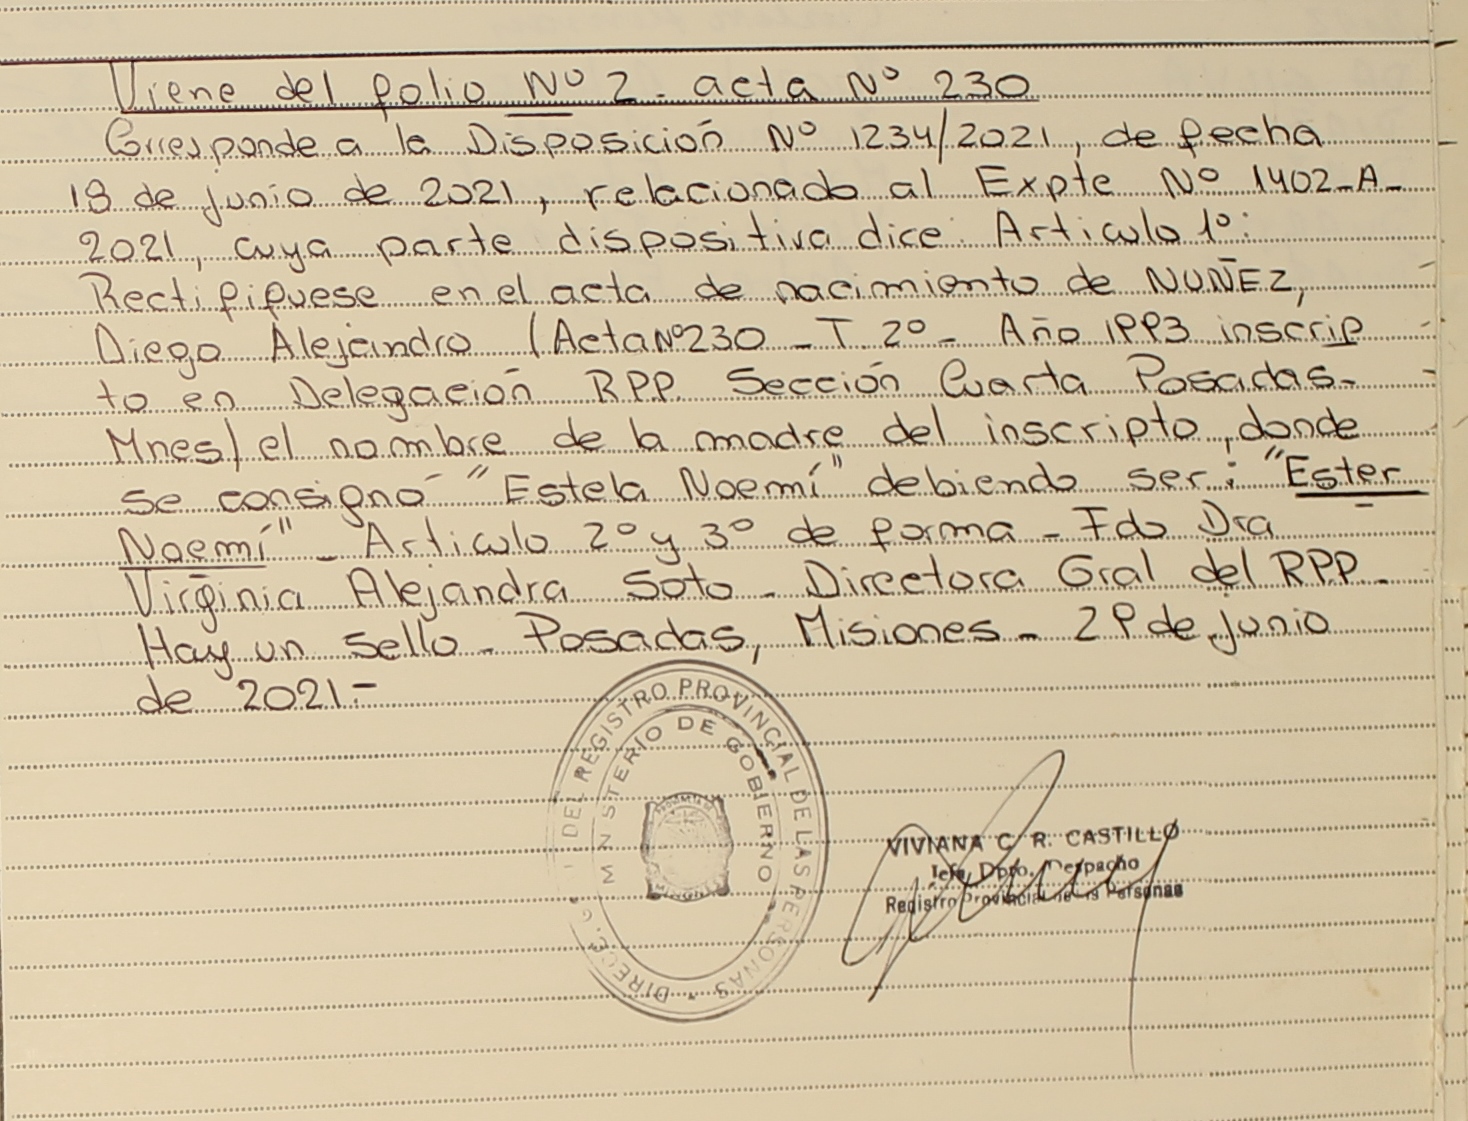 Viene del folio Nº 2 - acta Nº 230
Corresponde a la Disposición Nº 1234/2021, de fecha
18 de junio de 2021, relacionado al Expte Nº 1402-A-
2021, cuya parte dispositiva dice: Articulo 1º:
Rectifiquese en el acta de nacimiento de NUÑEZ,
Diego Alejandro (Acta Nº 230 - T. 2º - Año 1993 inscrip
to en Delegación RPP. Sección Cuarta Posadas-
Mnes) el nombre de la madre del inscripto, donde
se consignó "Estela Noemí" debiendo ser: "Ester
Noemí" - Articulo 2º y 3º de forma - Fdo Dra
Virginia Alejandra Soto - Directora Gral del RPP -
Hay un sello - Posadas, Misiones - 29 de junio
de 2021.-
DEL REGISTRO PROVINCIAL DE LAS PERSONAS
MINISTERIO DE GOBIERNO
VIVIANA C. R. CASTILLO
Jefa Dpto. Despacho
Registro Provincial de las Personas